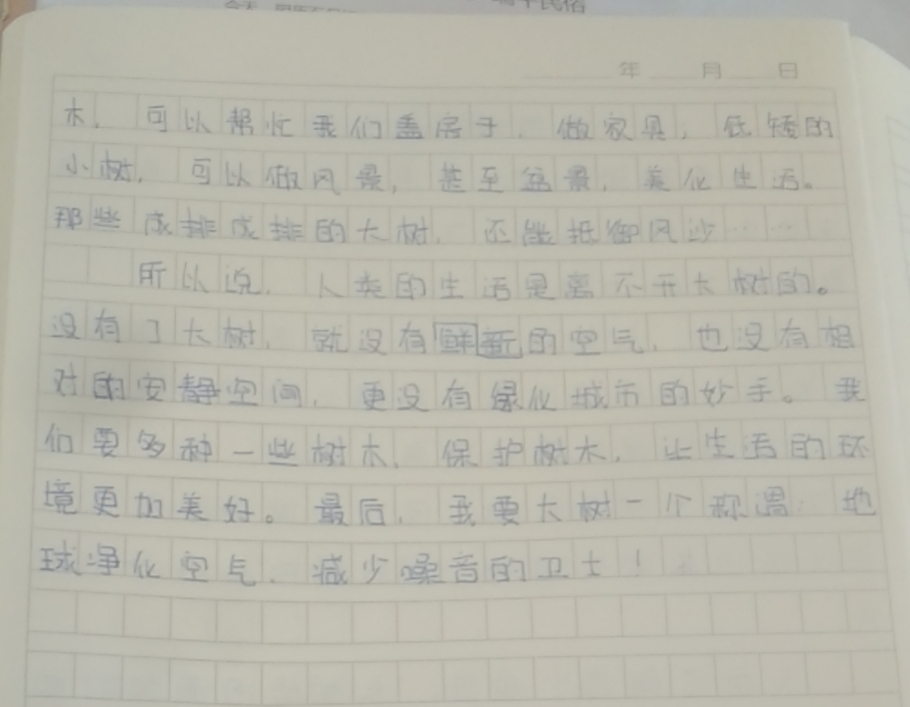 年 月 日
木，可以帮忙我们盖房子，做家具，低矮的
小树，可以做风景，甚至盆景，美化生活。
那些成排成排的大树，还能抵御风沙……
所以说，人类的生活是离不开大树的。
没有了大树，就没有鲜新的空气，也没有相
对的安静空间，更没有绿化城市的妙手。我
们要多种一些树木，保护树木，让生活的环
境更加美好。最后，我要大树一个称谓：地
球净化空气、减少噪音的卫士！